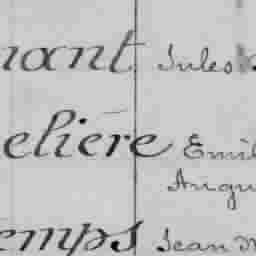 nant Jules
elière Emil
Augu
emps Jean M